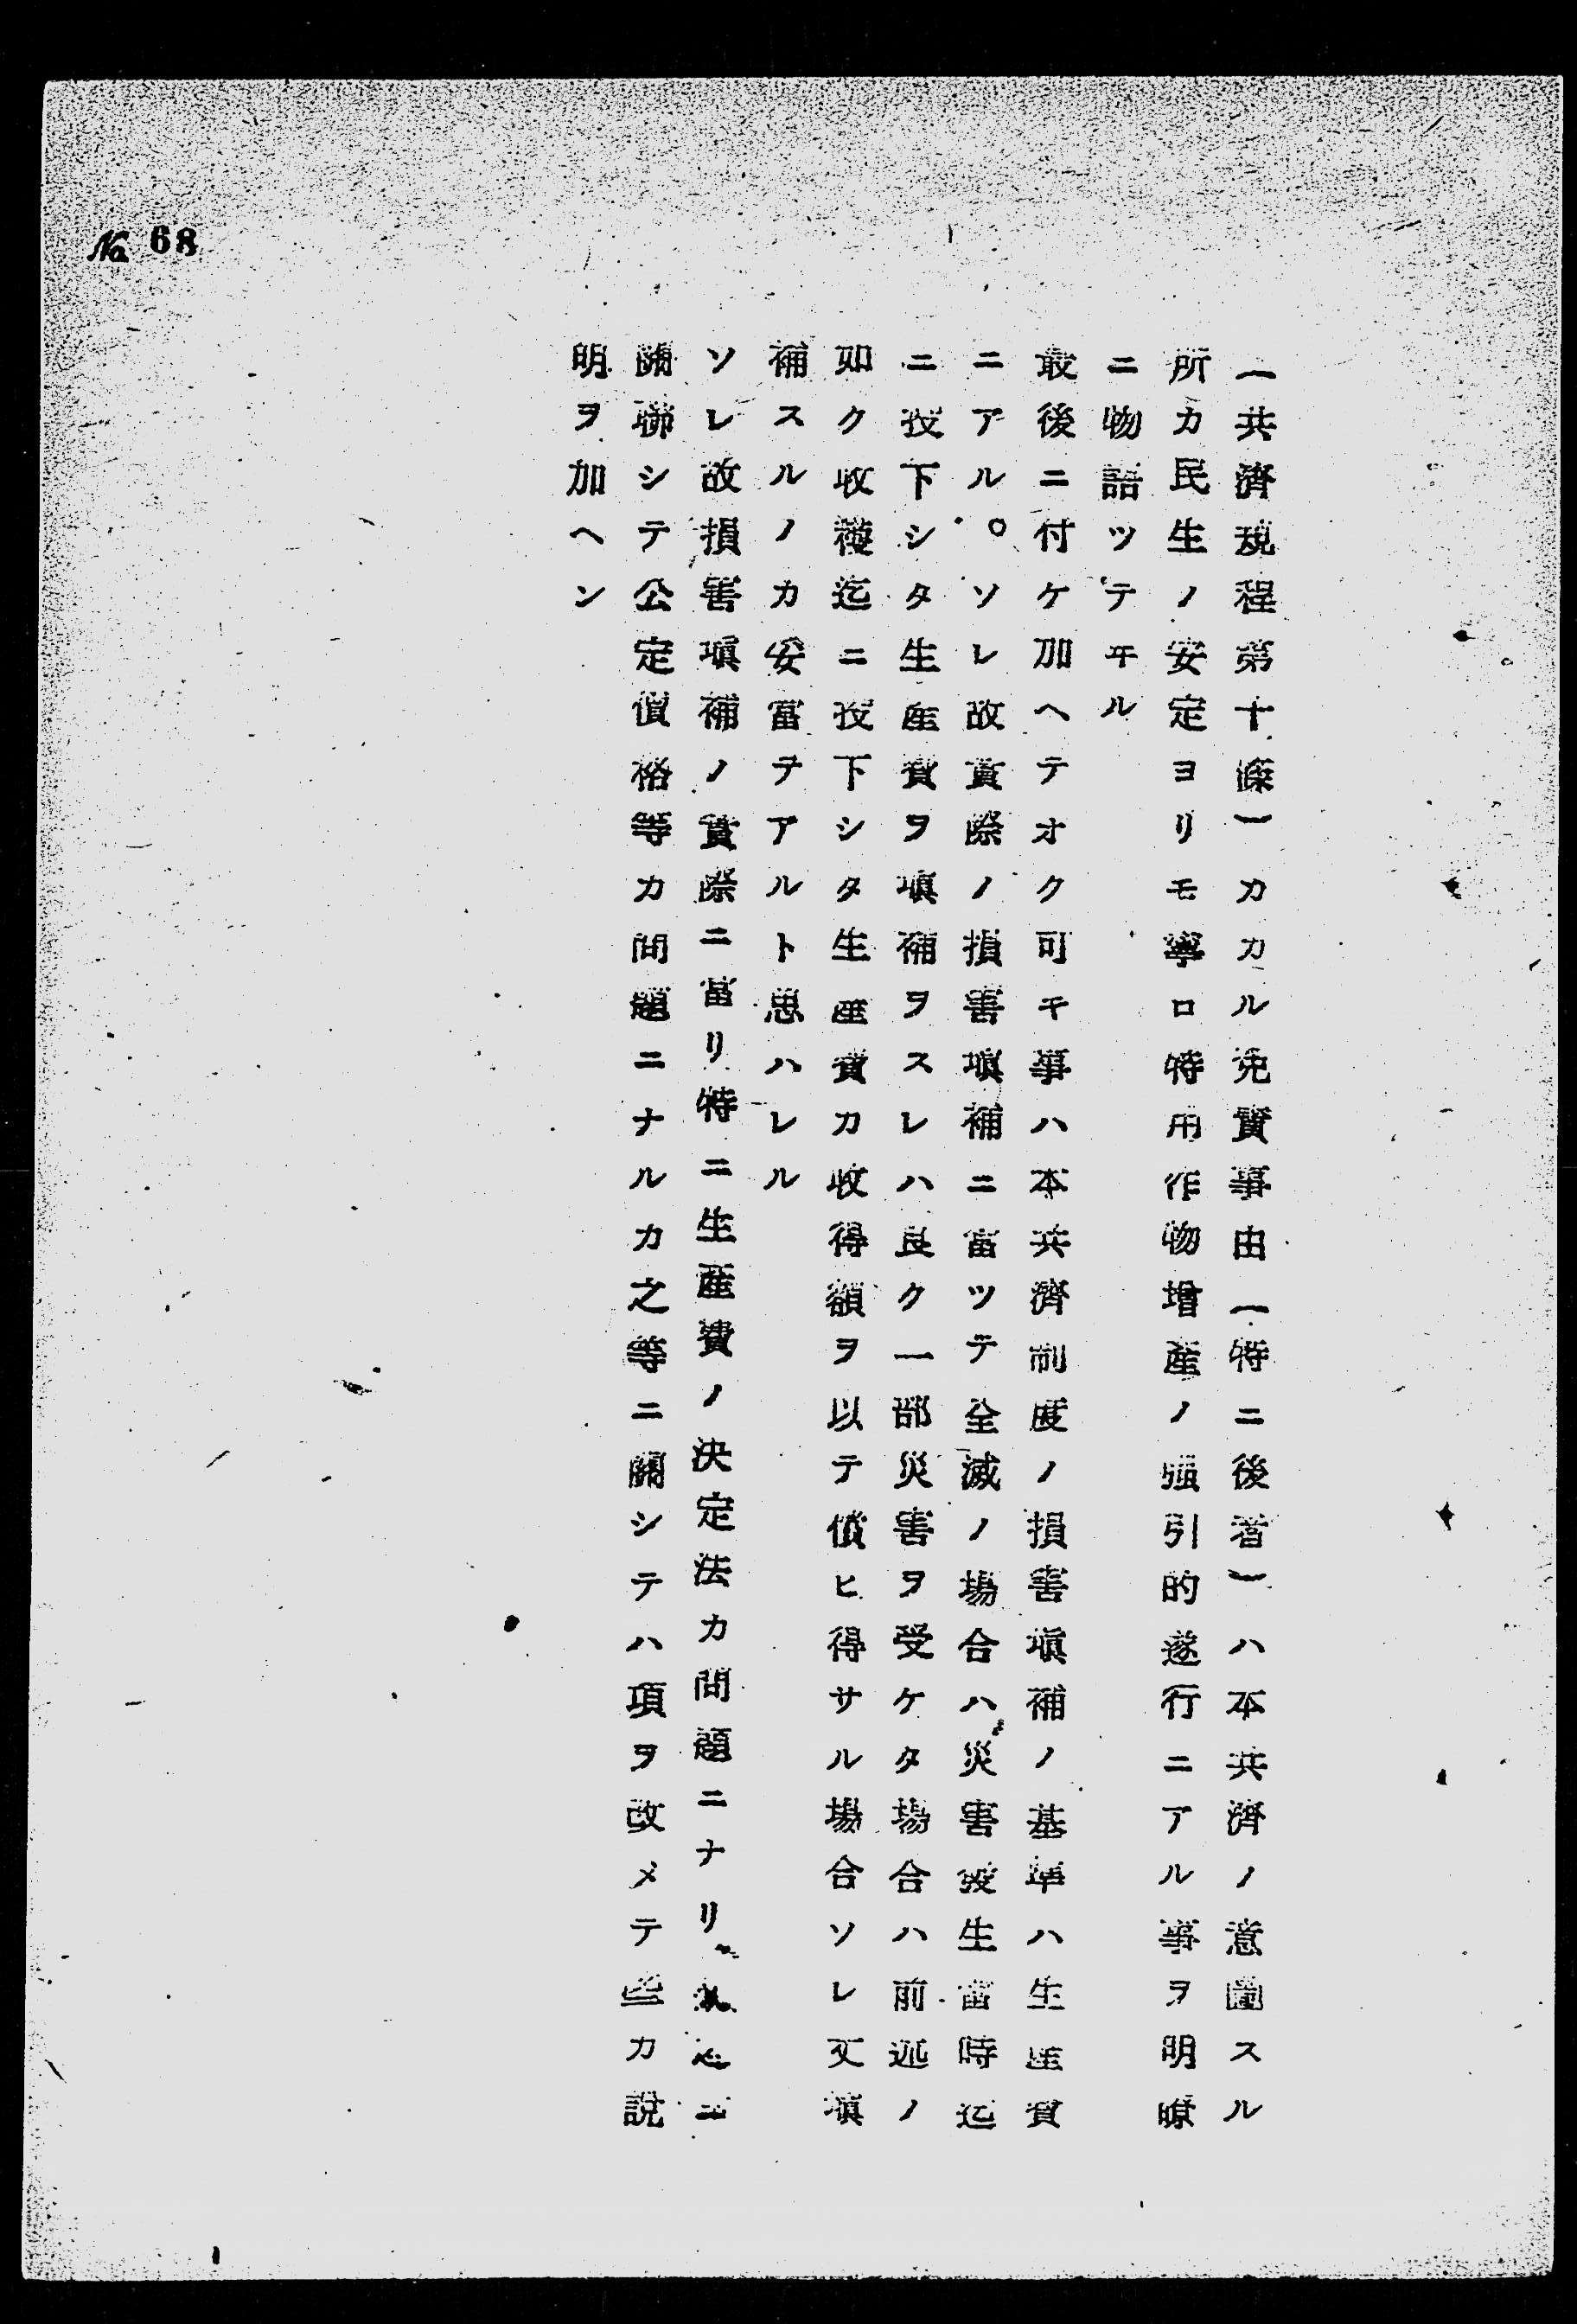 No. 68
（共濟規程第十條）カカル免責事由（特ニ後者）ハ本共濟ノ意圖スル
所カ民生ノ安定ヨリモ寧ロ特用作物增產ノ强引的遂行ニアル事ヲ明瞭
ニ物語ツテヰル
最後ニ付ケ加ヘテオク可キ事ハ本共濟制度ノ損害塡補ノ基準ハ生產費
ニアル。ソレ故實際ノ損害塡補ニ當ツテ全滅ノ場合ハ災害發生當時迄
ニ投下シタ生產費ヲ塡補ヲスレハ良ク一部災害ヲ受ケタ場合ハ前述ノ
如ク收穫迄ニ投下シタ生產費カ收得額ヲ以テ償ヒ得サル場合ソレヲ塡
補スルノカ妥當テアルト思ハレル
ソレ故損害塡補ノ實際ニ當リ特ニ生產費ノ決定法カ問題ニナリ ニ
關聯シテ公定價格等カ問題ニナルカ之等ニ關シテハ項ヲ改メテ些カ說
明ヲ加ヘン